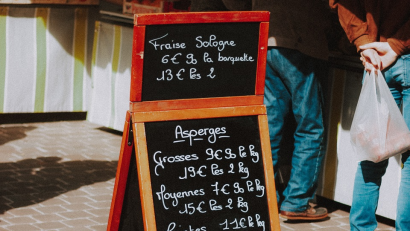 Fraise Sologne
6€90 la barquette
13€ les 2
Asperges
Grosses 9€90 le kg
19€ les 2 kg
Moyennes 7€90 le kg
15€ les 2 kg
11€ le kg